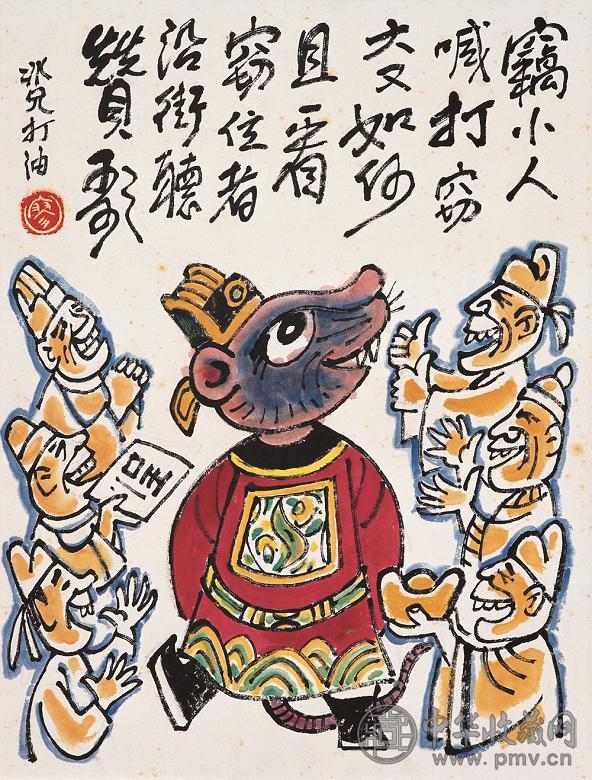 竊小人
喊打窃
大又如何
且看
窃位者
沿街聽
贊歌
冰兄打油
中华收藏网
www.pmv.cn